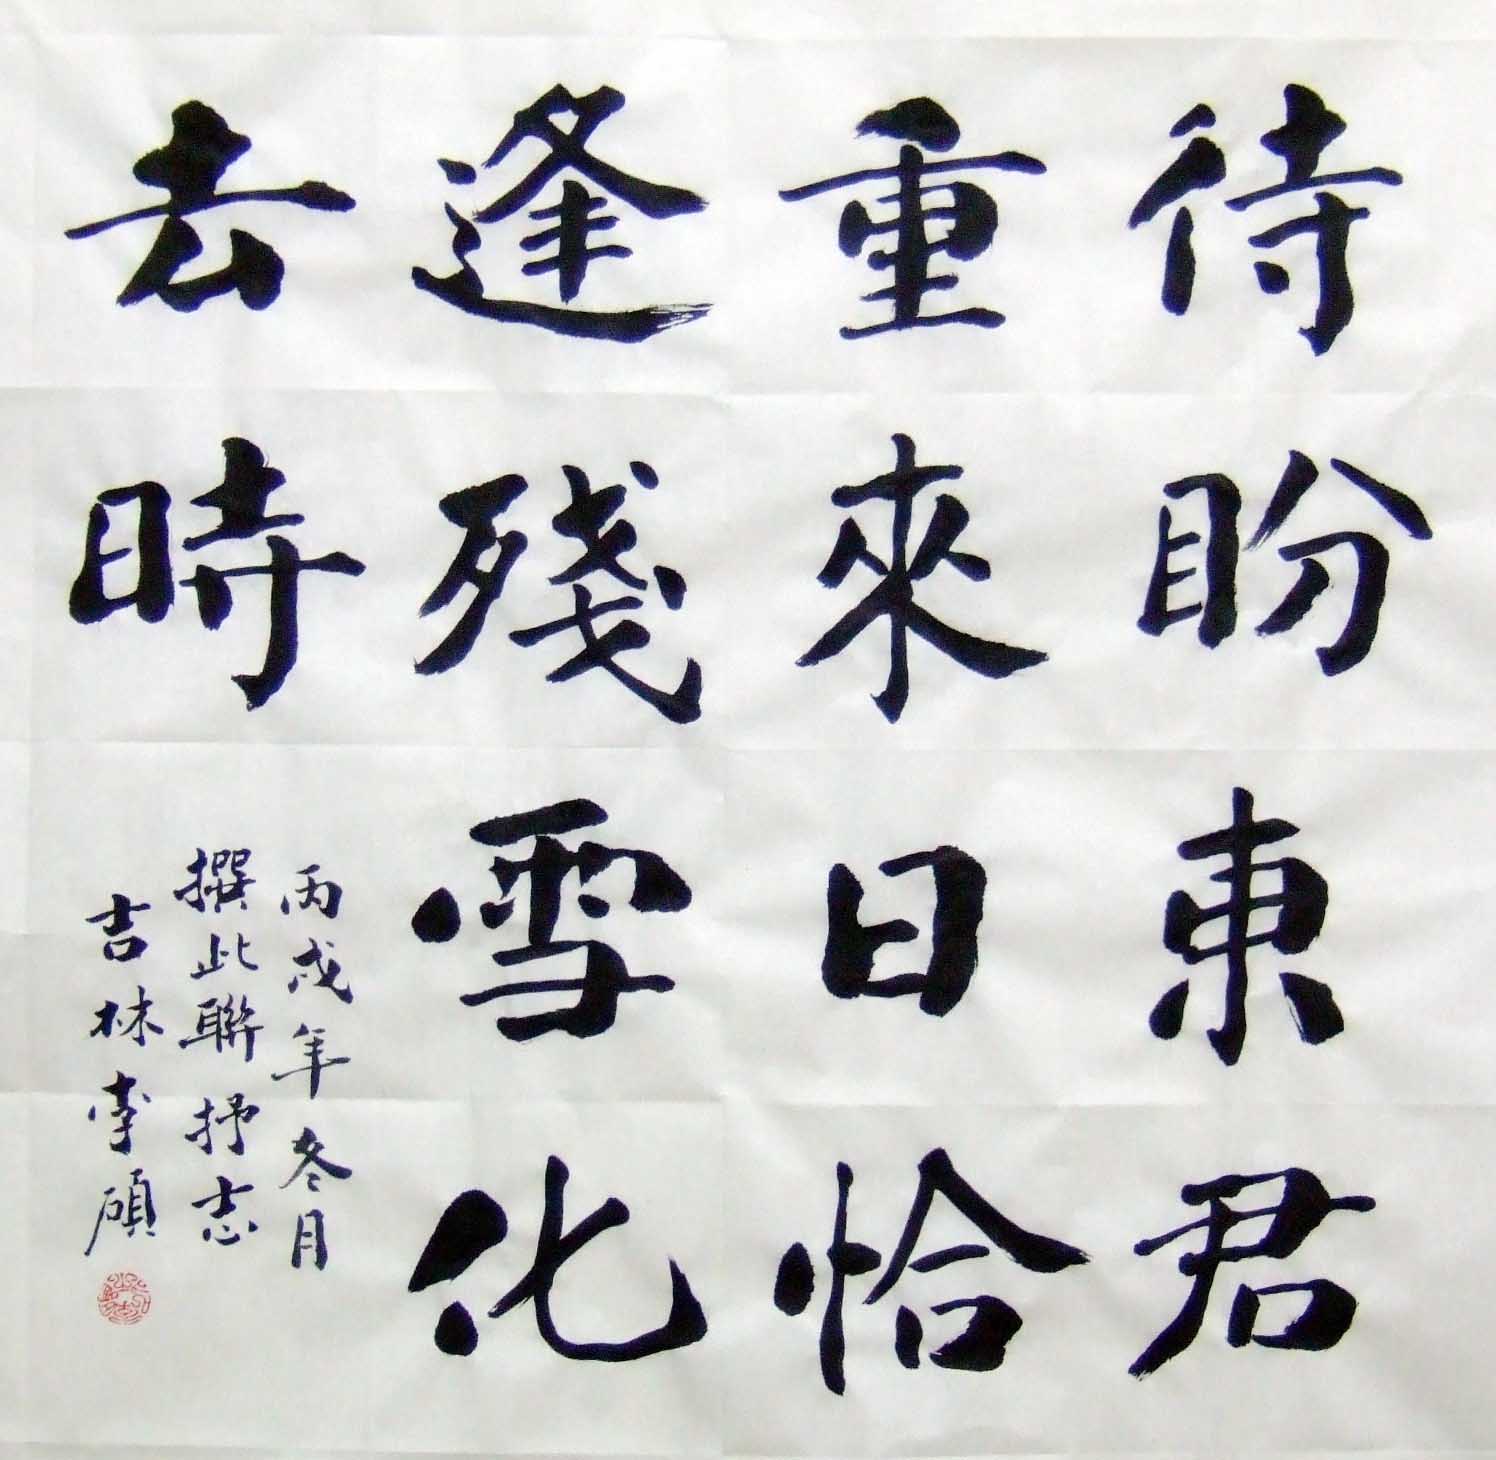 待盼東君
重來日恰
逢殘雪化
去時
丙戌年冬月
撰此聯抒志
吉林李碩